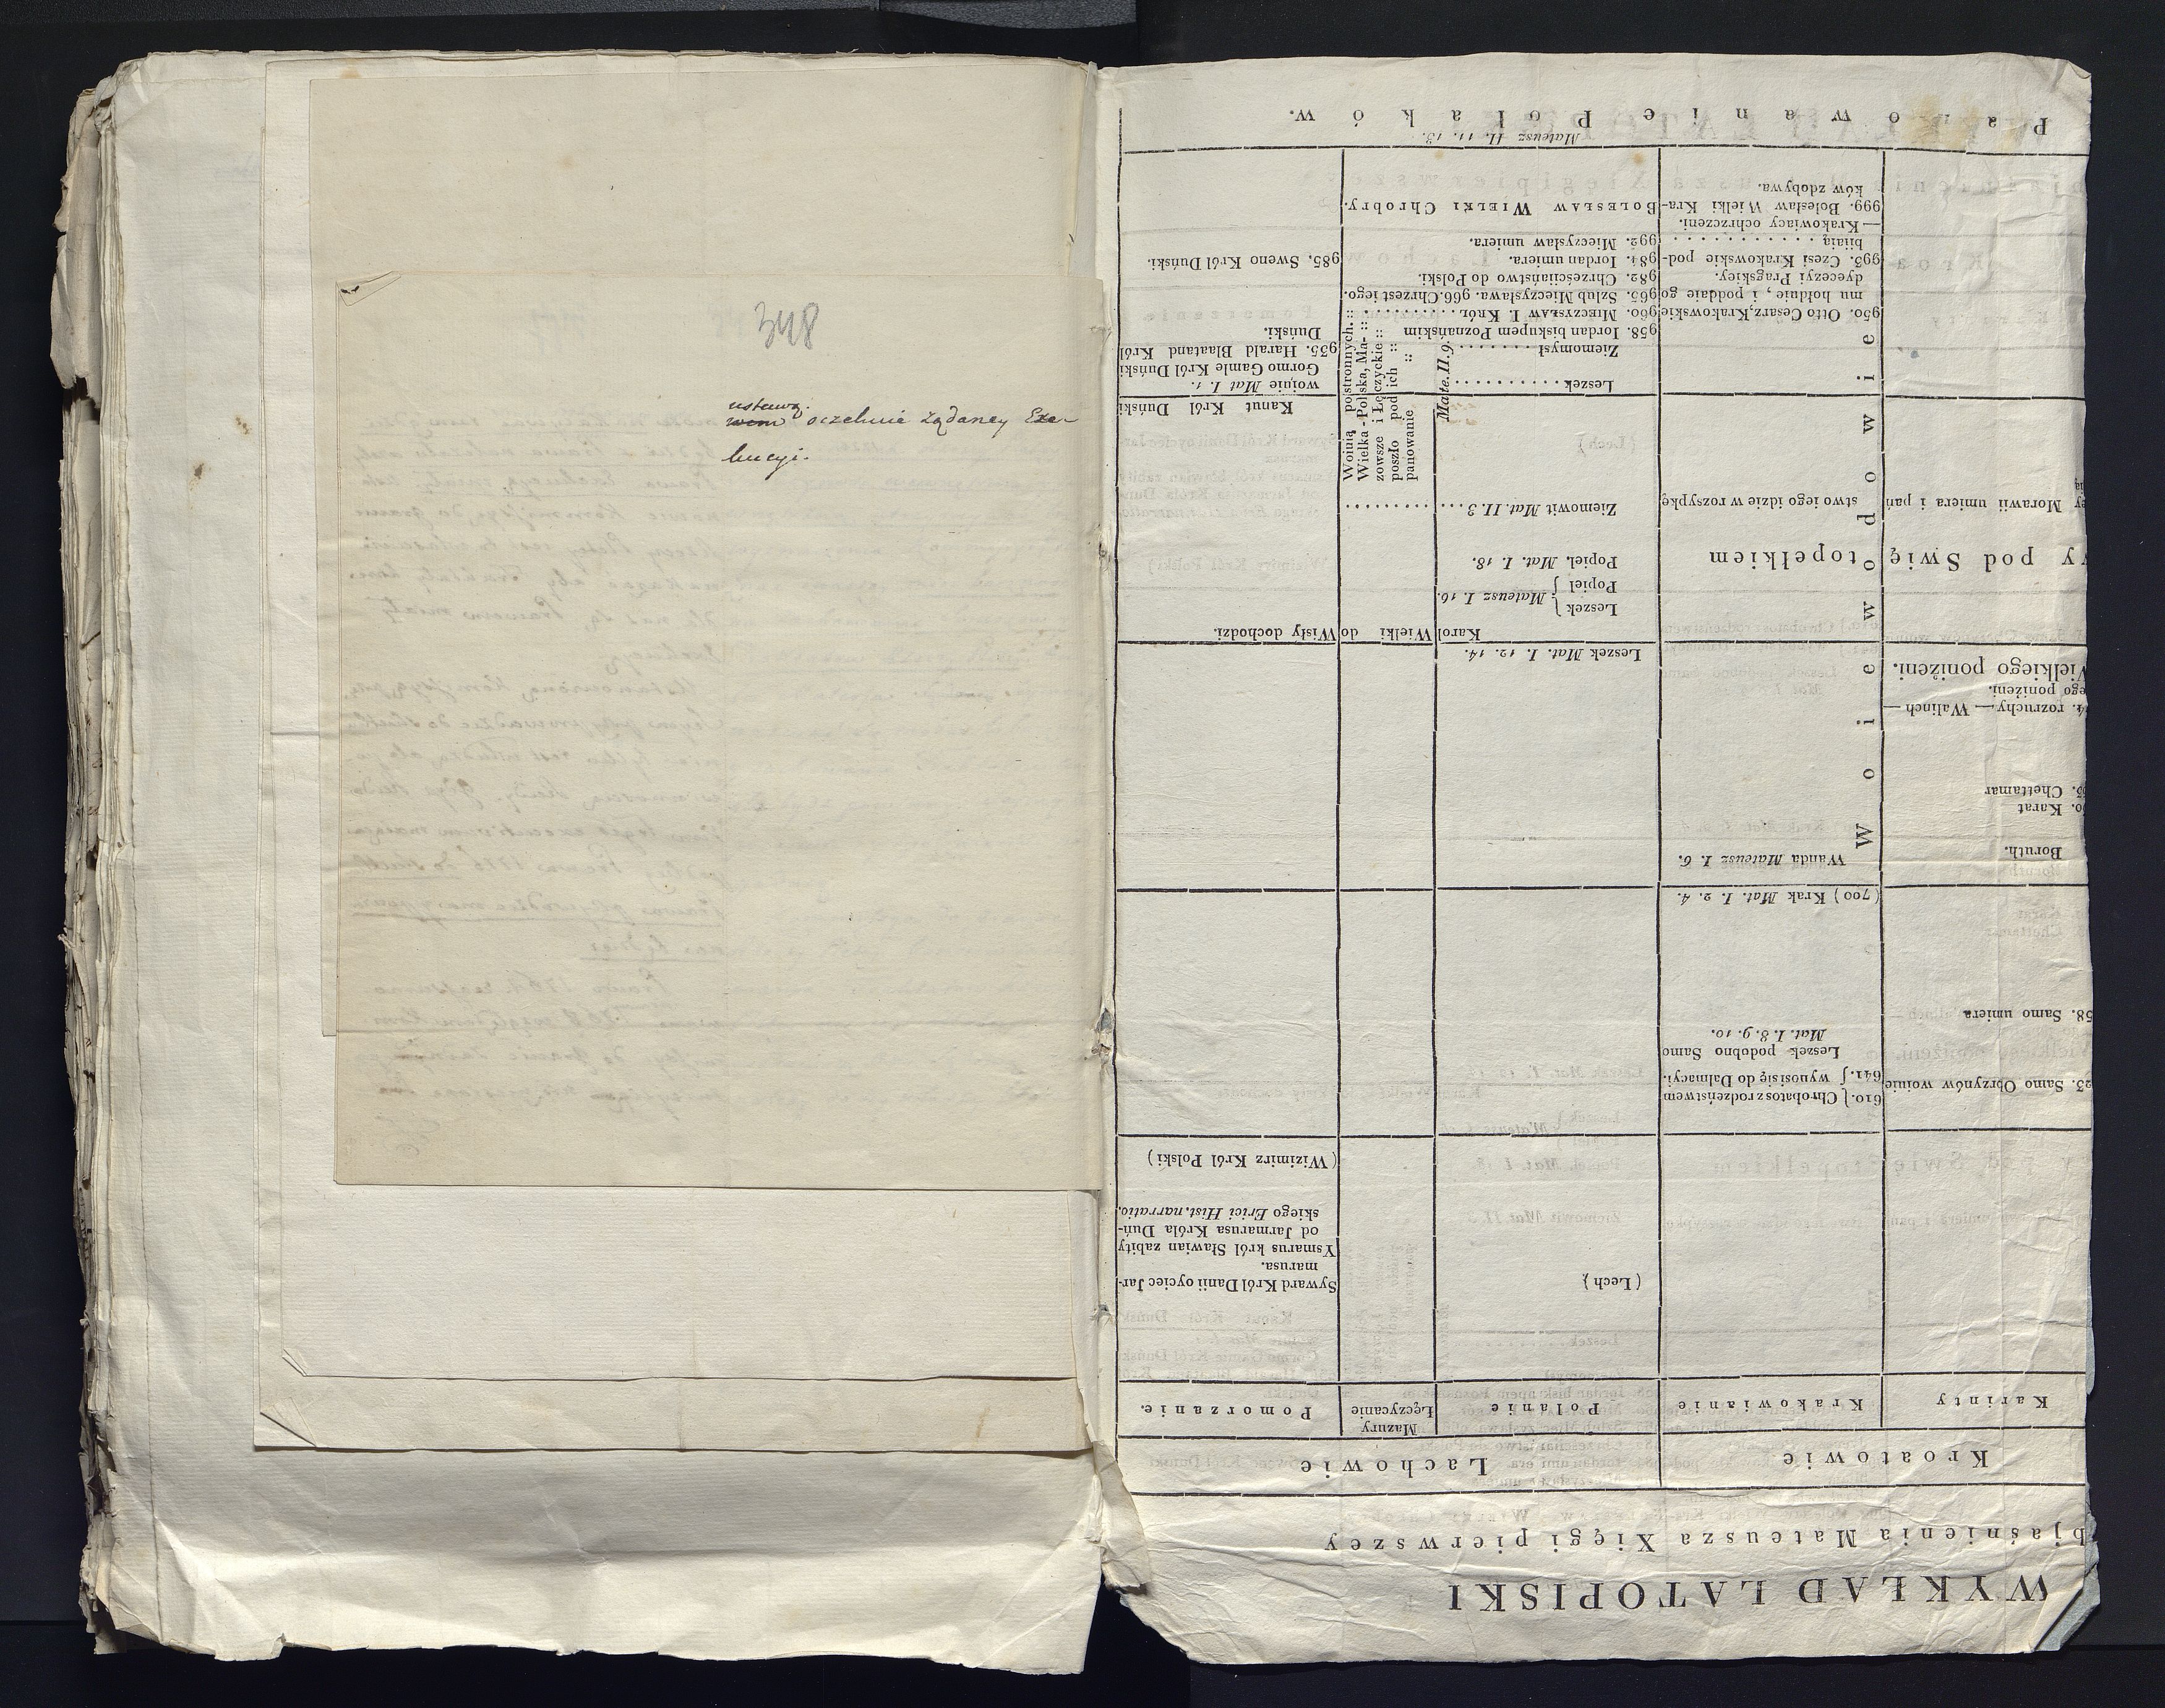 348
ustawą
oczekuie żądaney Exe-
kucyi.
WYKŁAD LATOPISKI
bjaśnienia Mateusza Xięgi pierwszey
Kroatowie
Lachowie
Karinty
Krakowianie
Polanie
Mazury
Łęczycanie
Pomorzanie.
(Lech)
Syward Król Danii oyciec Jar-
marusa.
Ysmarus król Sławian zabity
od Jarmarusa Króla Duń-
skiego Erici Hist. narratio.
(Wizimirz Król Polski)
23. Samo Obrzynów woiuie
58. Samo umiera
610. } Chrobatos z rodzeństwem
641. } wynosi się do Dalmacyi.
Leszek podobno Samo
Mat. I. 8. 9. 10.
(700) Krak Mat. I. 2. 4.
Boruth.
Karat
Chettamar
4. rozruchy — Walinch —
ego poniżeni.
Wielkiego poniżeni.
Wanda Mateusz I. 6.
Leszek Mat. I. 12. 14.
Karol Wielki do Wisły dochodzi.
Leszek } Mateusz I. 16.
Popiel
Popiel. Mat. I. 18.
y pod Swię topełkiem
ey Morawii umiera i pań
stwo iego idzie w rozsypkę
Ziemowit Mat. II. 3. . . . . . . . . .
(Lech)
Woiewodowie
Woiuią postronnych. „
Wielka-Polska, Ma- „
zowsze i Łęczyckie „
poszło pod ich „
panowanie „
Mate. II. 9.
Kanut Król Duński
woiuie Mat I. 1.
Gormo Gamle Król Duński
935. Harald Blaatand Król
Duński.
Leszek . . . . . . . . . . .
Ziemomysł . . . . . . . .
958. Iordan biskupem Poznańskim
960. Mieczysław I. Król. . . . . . . . .
965. Szlub Mieczysława. 966. Chrzest iego.
982. Chrześciiaństwo do Polski.
984. Iordan umiera.
992. Mieczysław umiera.
Bolesław Wielki Chrobry.
950. Otto Cesarz, Krakowskie
mu hołduie, i poddaie go
dyecezyi Pragskiey.
995. Czesi Krakowskie pod-
biiaią . . . . . . . . . . .
—Krakowiacy ochrzczeni.
999. Bolesław Wielki Kra-
ków zdobywa.
985. Sweno Król Duński.
Mateusz II. 11. 13.
Panowanie Polaków.